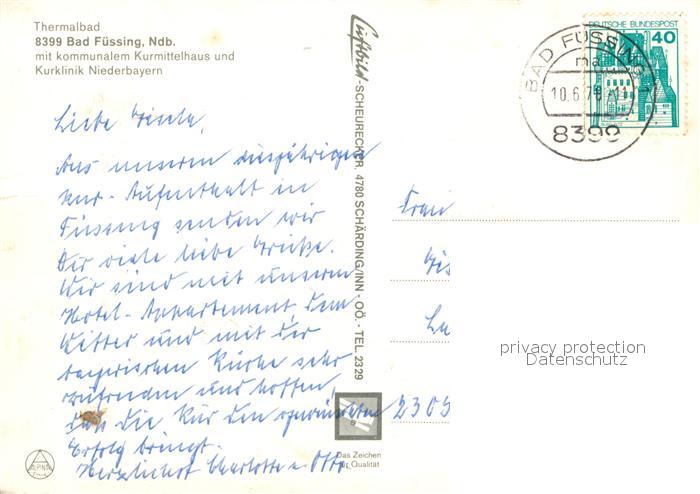 Thermalbad
8399 Bad Füssing, Ndb.
mit kommunalem Kurmittelhaus und
Kurklinik Niederbayern
Liebe Gisela,
Aus unserem diesjährigen
Kur-Aufenthalt in
Füssing senden wir
Dir viele liebe Grüße.
Wir sind mit unserem
Hotel-Appartement, dem
Wetter und mit der
bayrischen Küche sehr
zufrieden und hoffen,
daß die Kur den gewünschten
Erfolg bringt.
Herzlichst Charlotte u. Otto
ALPINA
Luftbild-SCHEURECKER, 4780 SCHÄRDING/INN - OÖ. - TEL. 2329
Das Zeichen
für Qualität
DEUTSCHE BUNDESPOST
40
BAD FÜSSING
10.6.78-11
8399
Frau
Gis
La
2305
privacy protection
Datenschutz